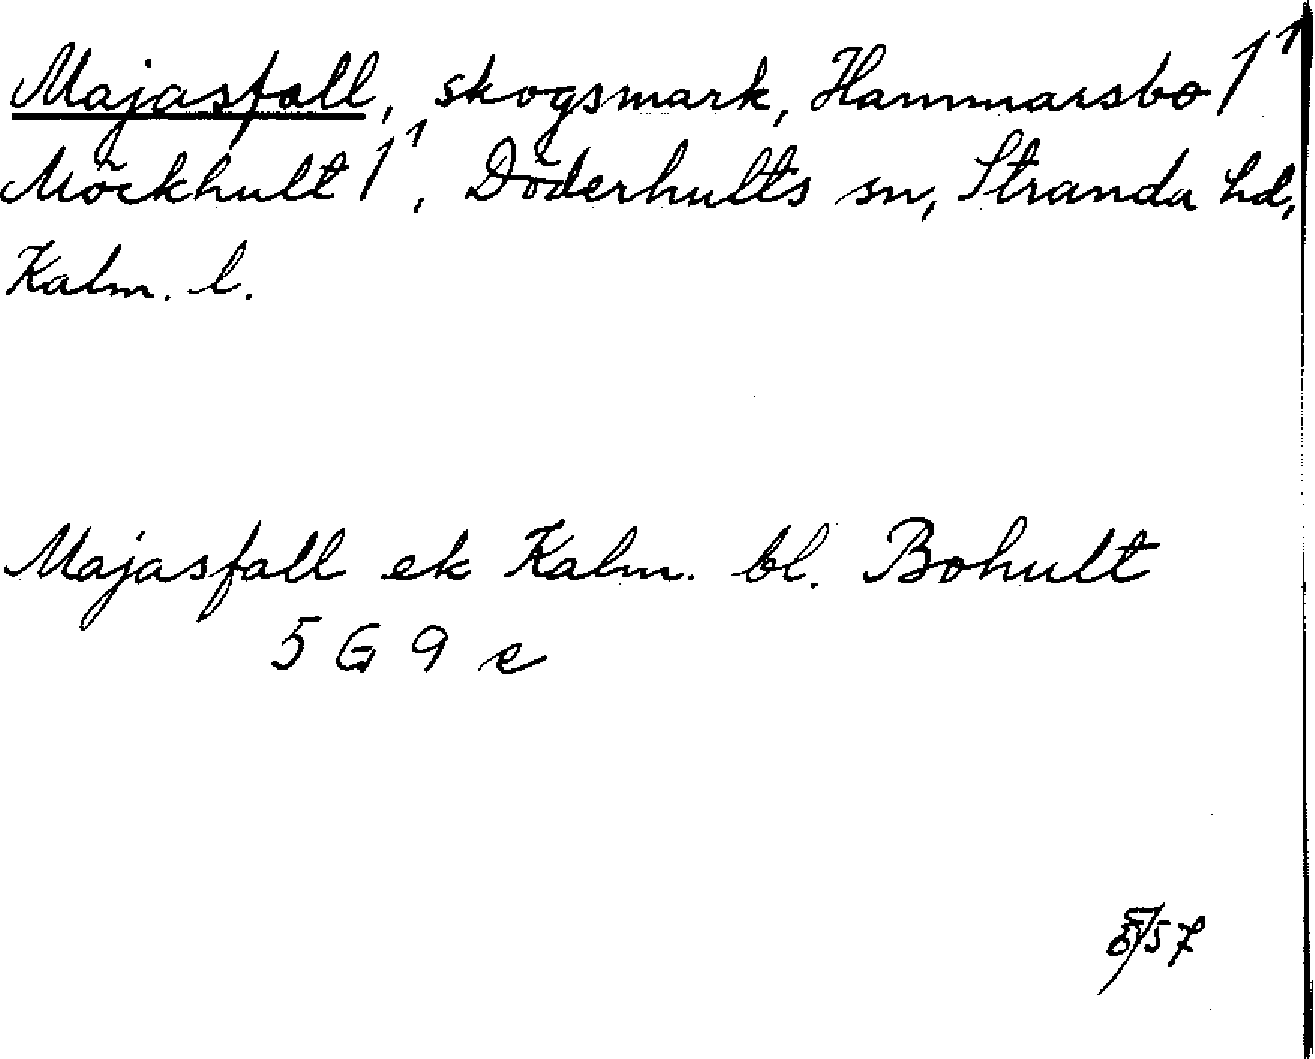 Majasfall, skogsmark, Hammarsbo 1¹
Möckhult 1¹, Döderhults sn, Stranda hd,
Kalm. l.
Majasfall ek Kalm. bl. Bohult
5 G 9 e
/57